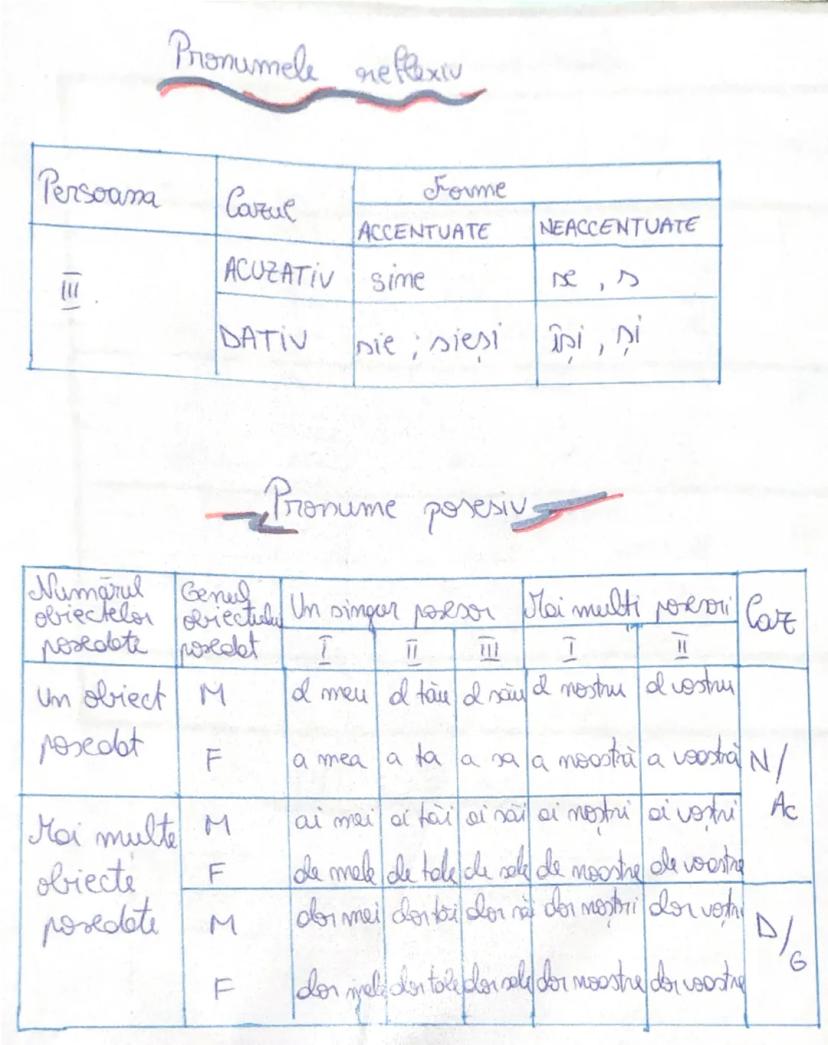 Pronumele reflexiv
Persoana Cazul Forme
ACCENTUATE NEACCENTUATE
III ACUZATIV sime se, s
DATIV sie; sieși își, și
Pronume posesiv
Numărul Genul Un singur posesor Mai mulți posesori Caz
obiectelor obiectului
posedate posedat I II III I II
Un obiect M al meu al tău al său al nostru al vostru
posedat F a mea a ta a sa a noastră a voastră N/
Ac
Mai multe M ai mei ai tăi ai săi ai noștri ai voștri
obiecte F ale mele ale tale ale sale ale noastre ale voastre
posedate M alor mei alor tăi alor săi alor noștri alor voștri D/
G
F alor mele alor tale alor sale alor noastre alor voastre